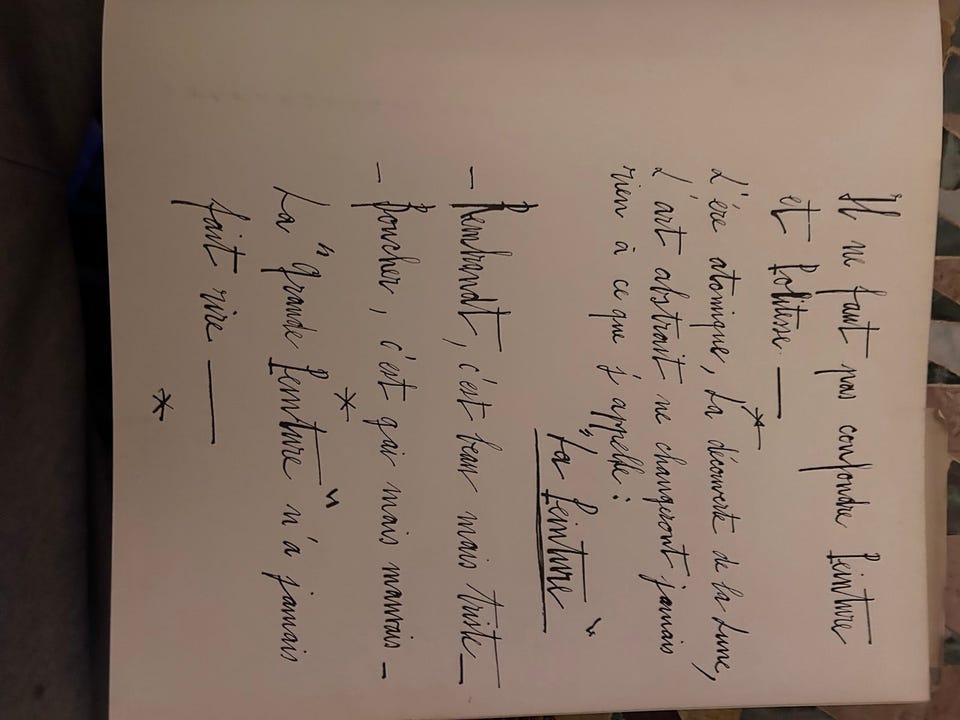 Il ne faut pas confondre Peinture
et Politesse. —
*
L'ère atomique, La découverte de la Lune,
L'art abstrait ne changeront jamais
rien à ce que j'appelle :
"La Peinture"
— Rembrandt, c'est beau mais triste —
— Boucher, c'est gai mais mauvais —
*
La "grande Peinture" n'a jamais
fait rire —
*